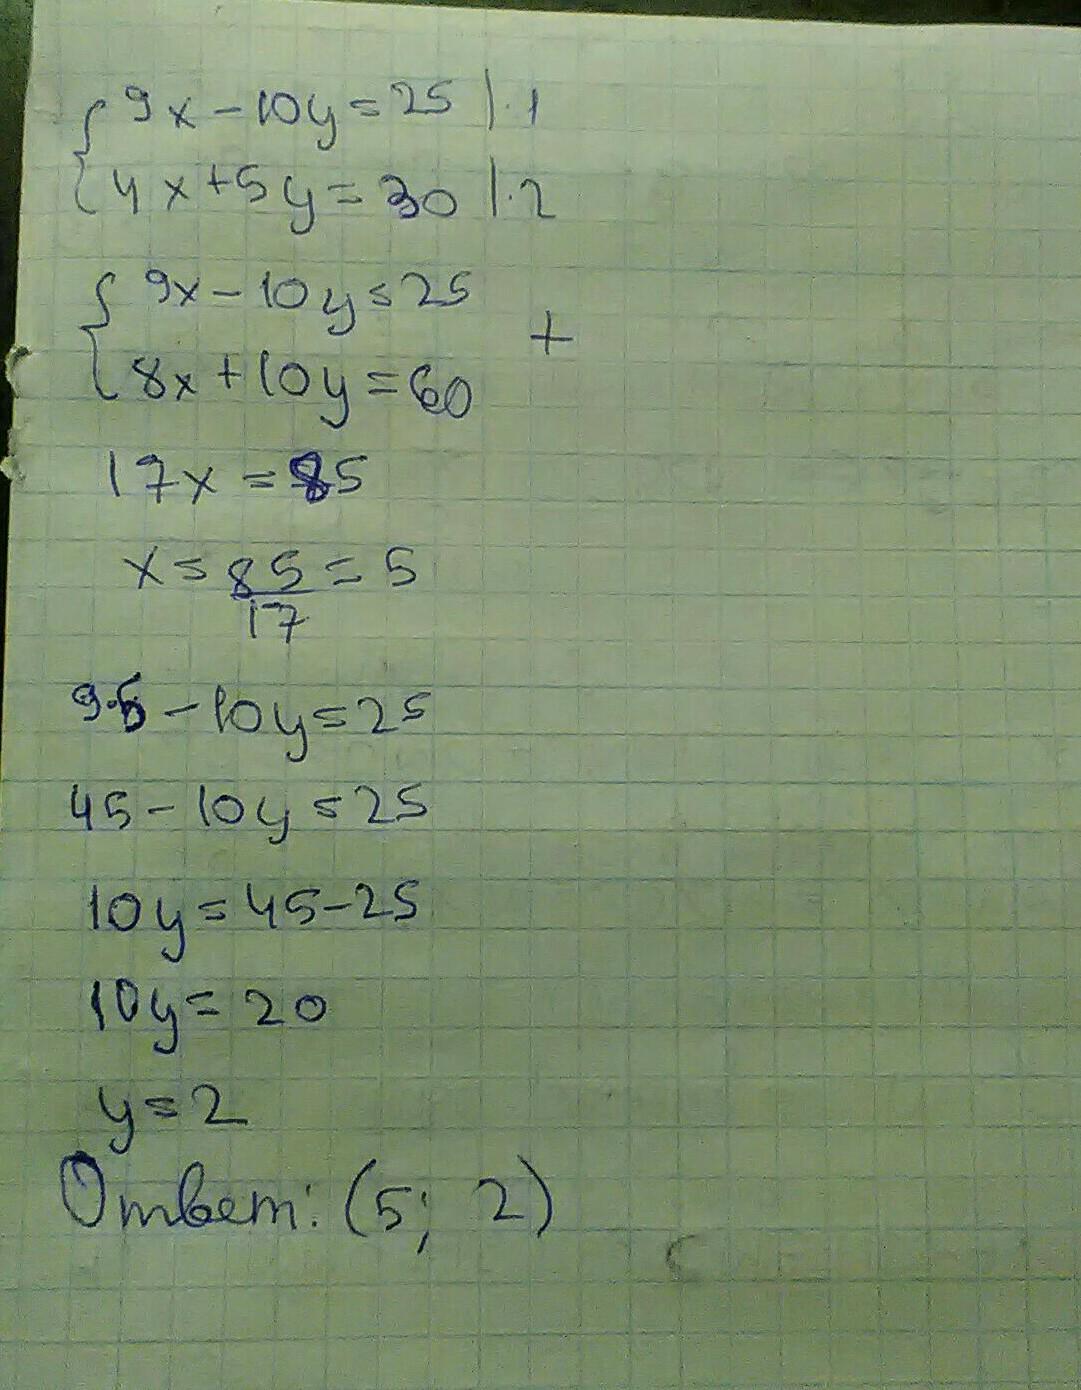 9x - 10y = 25 | · 1
4x + 5y = 30 | · 2
9x - 10y = 25
+
8x + 10y = 60
17x = 85
x = 85/17 = 5
9·5 - 10y = 25
45 - 10y = 25
10y = 45 - 25
10y = 20
y = 2
Ответ: (5; 2)